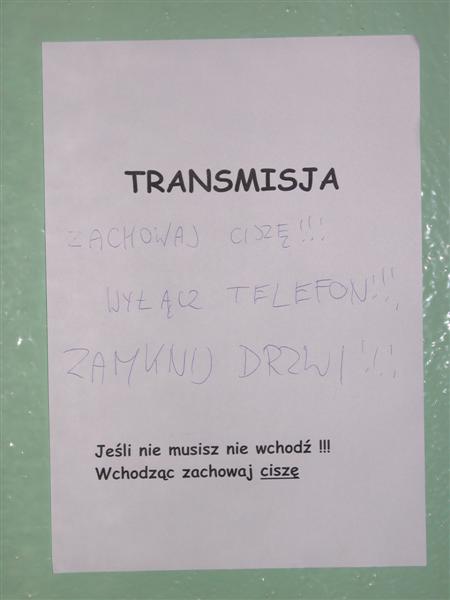 TRANSMISJA
ZACHOWAJ CISZĘ!!!
WYŁĄCZ TELEFON!!!
ZAMKNIJ DRZWI!!!
Jeśli nie musisz nie wchodź !!!
Wchodząc zachowaj ciszę